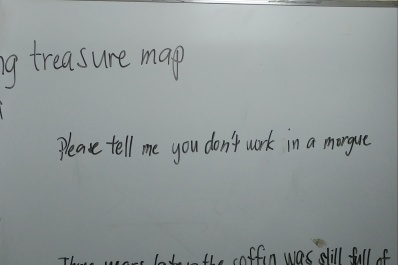 ng treasure map
Please tell me you don't work in a morgue
Three years later the coffin was still full of